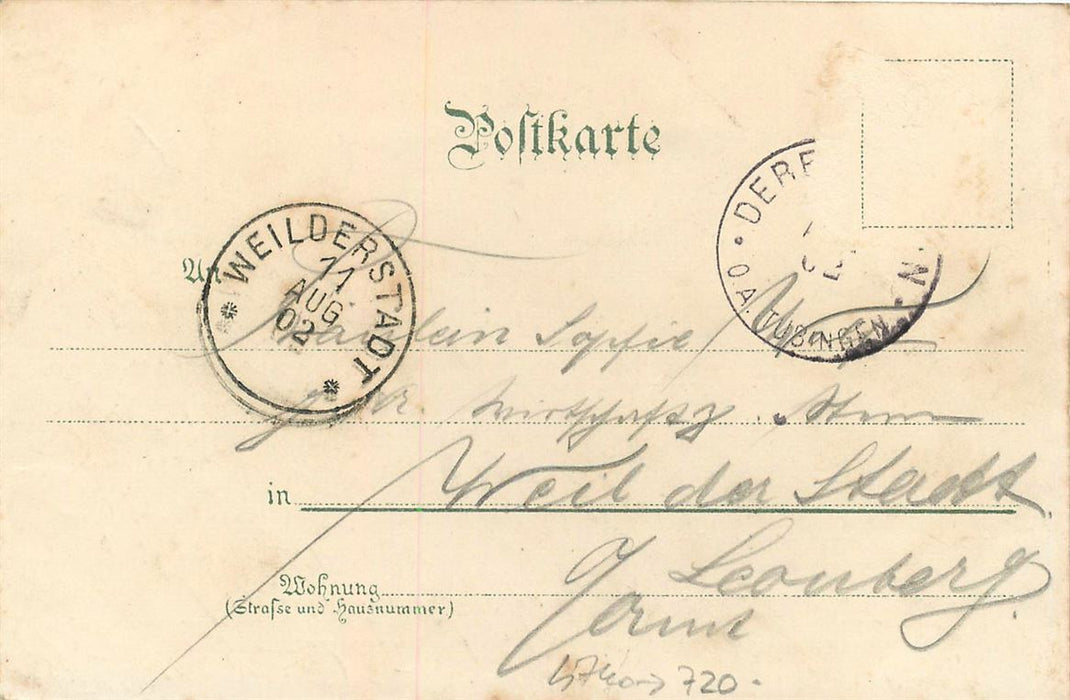 Postkarte
DERE N
O.A. TÜBINGEN
WEILDERSTADT
11
AUG
02
An Fräulein Sofie
Wirtschaft z. Stern
in Weil der Stadt
O/ Leonberg
Wohnung
(Strasse und Hausnummer)
720